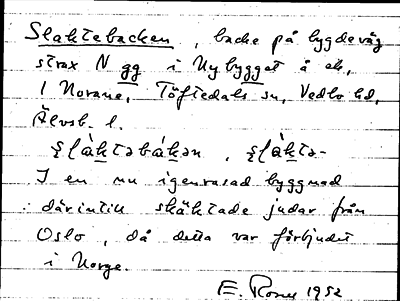 Slaktebacken, backe på bygdeväg
strax N gg i Nybygget å ek.
1 Norane, Töftedals sn, Vedbo hd,
Älvsb. l.
I en nu igenrasad byggnad
därintill skäktade judar från
Oslo, då detta var förbjudet
i Norge.
E. 1952